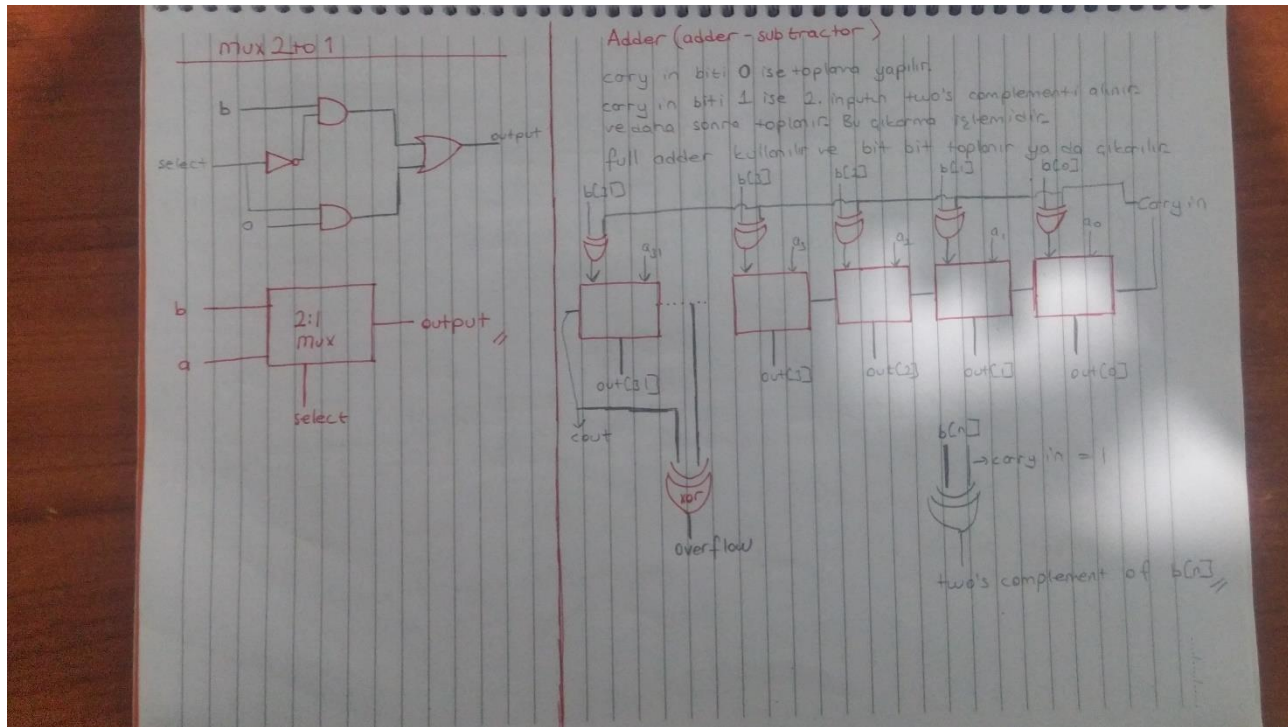 mux 2 to 1
b
select
a
output
b
a
2:1
mux
output
select
Adder (adder-subtractor)
cary in biti 0 ise toplama yapılır
cary in biti 1 ise 2. inputun two's complementi alınır
ve daha sonra toplanır Bu çıkarma işlemidir
full adder kullanılır ve bit bit toplanır ya da çıkarılır
b[31]
b[3]
b[2]
b[1]
b[0]
cary in
a31
a3
a2
a1
a0
out[31]
out[3]
out[2]
out[1]
out[0]
cout
xor
overflow
b[n]
cary in = 1
two's complement of b[n]